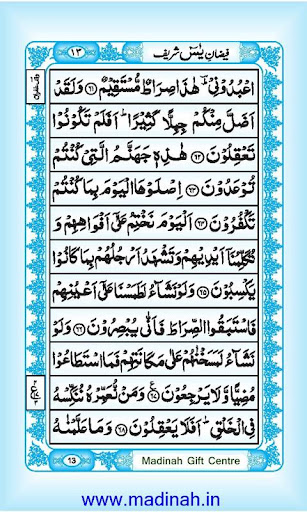 ۱۳ فیضانِ یٰسٓ شریف
اعْبُدُوْنِیْ ؔؕ هٰذَا صِرَاطٌ مُّسْتَقِیْمٌ ﴿۶۱﴾ وَلَقَدْ
اَضَلَّ مِنْكُمْ جِبِلًّا كَثِیْرًا ؕ اَفَلَمْ تَكُوْنُوْا
تَعْقِلُوْنَ ﴿۶۲﴾ هٰذِهٖ جَهَنَّمُ الَّتِیْ كُنْتُمْ
تُوْعَدُوْنَ ﴿۶۳﴾ اِصْلَوْهَا الْیَوْمَ بِمَا كُنْتُمْ
تَكْفُرُوْنَ ﴿۶۴﴾ اَلْیَوْمَ نَخْتِمُ عَلٰۤی اَفْوَاهِهِمْ وَ
تُكَلِّمُنَاۤ اَیْدِیْهِمْ وَتَشْهَدُ اَرْجُلُهُمْ بِمَا كَانُوْا
یَكْسِبُوْنَ ﴿۶۵﴾ وَلَوْ نَشَآءُ لَطَمَسْنَا عَلٰۤی اَعْیُنِهِمْ
فَاسْتَبَقُوا الصِّرَاطَ فَاَنّٰی یُبْصِرُوْنَ ﴿۶۶﴾ وَلَوْ
نَشَآءُ لَمَسَخْنٰهُمْ عَلٰی مَكَانَتِهِمْ فَمَا اسْتَطَاعُوْا
مُضِیًّا وَّلَا یَرْجِعُوْنَ ﴿۶۷﴾ وَمَنْ نُّعَمِّرْهُ نُنَكِّسْهُ
فِی الْخَلْقِ ؕ اَفَلَا یَعْقِلُوْنَ ﴿۶۸﴾ وَمَا عَلَّمْنٰهُ
13 Madinah Gift Centre
www.madinah.in